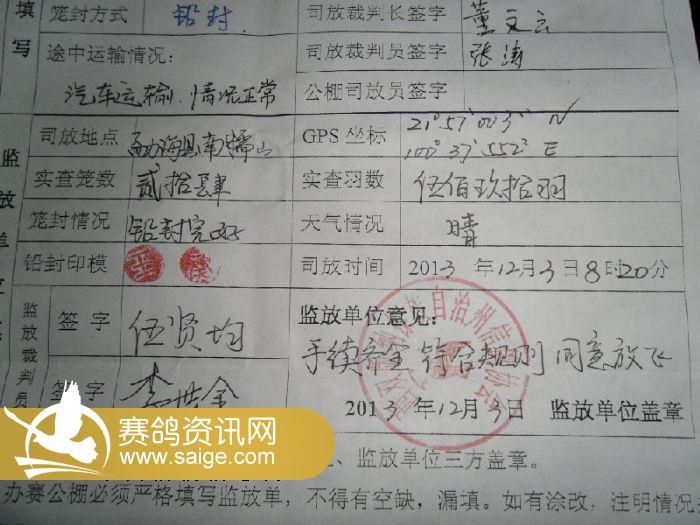 填 写
笼封方式 铅封. 司放裁判长签字 董文云
途中运输情况: 司放裁判员签字 张涛
汽车运输.情况正常 公棚司放员签字
监 放 单 位
司放地点 勐海县南糯山 GPS 坐标 21°57′003″ N
100°37′552″ E
实查笼数 贰拾肆 实查羽数 伍佰玖拾羽
笼封情况 铅封完好 天气情况 晴
铅封印模 司放时间 2013 年 12 月 3 日 8 时 20 分
监放裁判员 签 字 伍贤均 监放单位意见:
自治州信鸽协会
手续齐全 符合规则 同意放飞
签 字 李世金 2013 年 12 月 3 日 监放单位盖章
赛鸽资讯网
www.saige.com
、监放单位三方盖章。
办赛公棚必须严格填写监放单,不得有空缺,漏填。如有涂改,注明情况